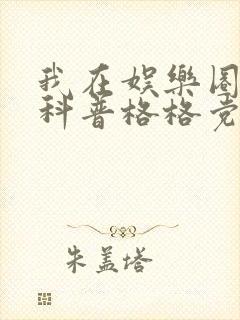 我在娱樂圈
科普格格党
朱盖塔